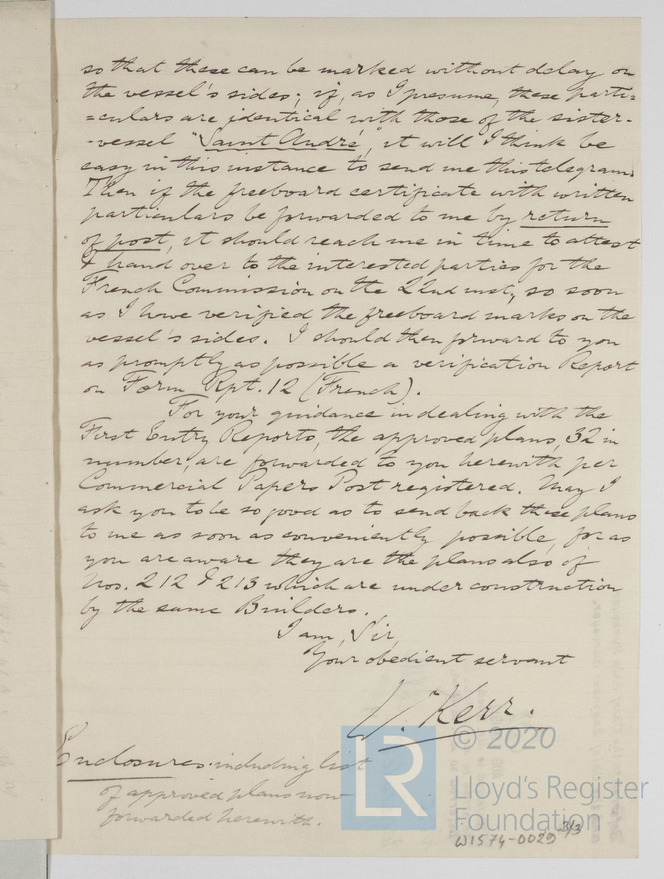 so that these can be marked without delay on
the vessel's sides; if, as I presume, these parti=
=culars are identical with those of the sister-
-vessel "Saint André", it will I think be
easy in this instance to send me this telegram.
Then if the freeboard certificate with written
particulars be forwarded to me by return
of post, it should reach me in time to attest
& hand over to the interested parties for the
French Commission on the 22nd inst, so soon
as I have verified the freeboard marks on the
vessel's sides. I should then forward to you
as promptly as possible a verification Report
on Form Rpt. 12 (French).
For your guidance in dealing with the
First Entry Reports, the approved plans, 32 in
number, are forwarded to you herewith per
Commercial Papers Post registered. May I
ask you to be so good as to send back these plans
to me as soon as conveniently possible, for as
you are aware they are the plans also of
Nos. 212 & 213 which are under construction
by the same Builders.
I am, Sir,
Your obedient servant
W. Kerr.
Enclosures including list
of approved plans now
forwarded herewith.
LR
© 2020
Lloyd's Register
Foundation
3/3
W1574-0029